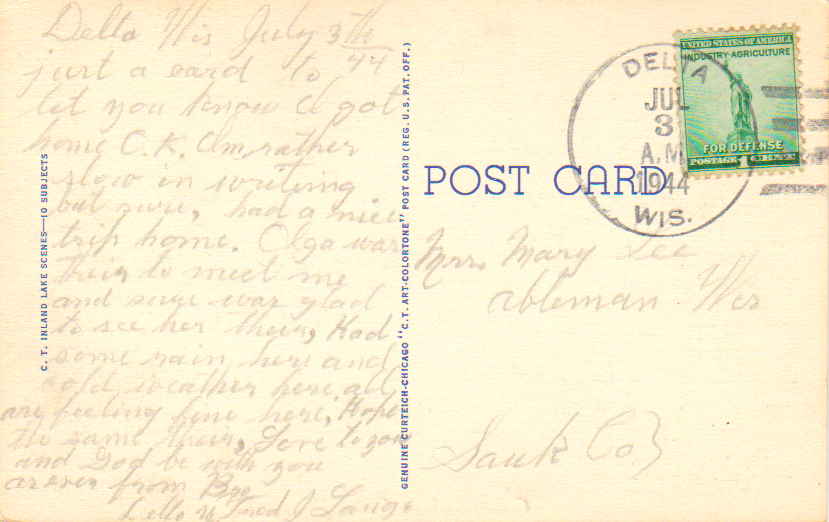 Delta Wis July 3th
44
just a card to
let you know I got
home O.K. Am rather
slow in writing
but sure, had a nice
trip home. Olga was
their to meet me
and sure was glad
to see her their, Had
some rain here and
cold weather here, all
are feeling fine here, Hope
the same their, Love to you
and God be with you
as ever from
Fred J Lange
C. T. INLAND LAKE SCENES—10 SUBJECTS
GENUINE CURTEICH-CHICAGO "C.T. ART-COLORTONE" POST CARD (REG. U.S. PAT. OFF.)
POST CARD
DELTA
JUL
3
A.M
1944
WIS.
UNITED STATES OF AMERICA
INDUSTRY-AGRICULTURE
FOR DEFENSE
POSTAGE 1 CENT
Mrs. Mary Lee
Ableman Wis
Sauk Co